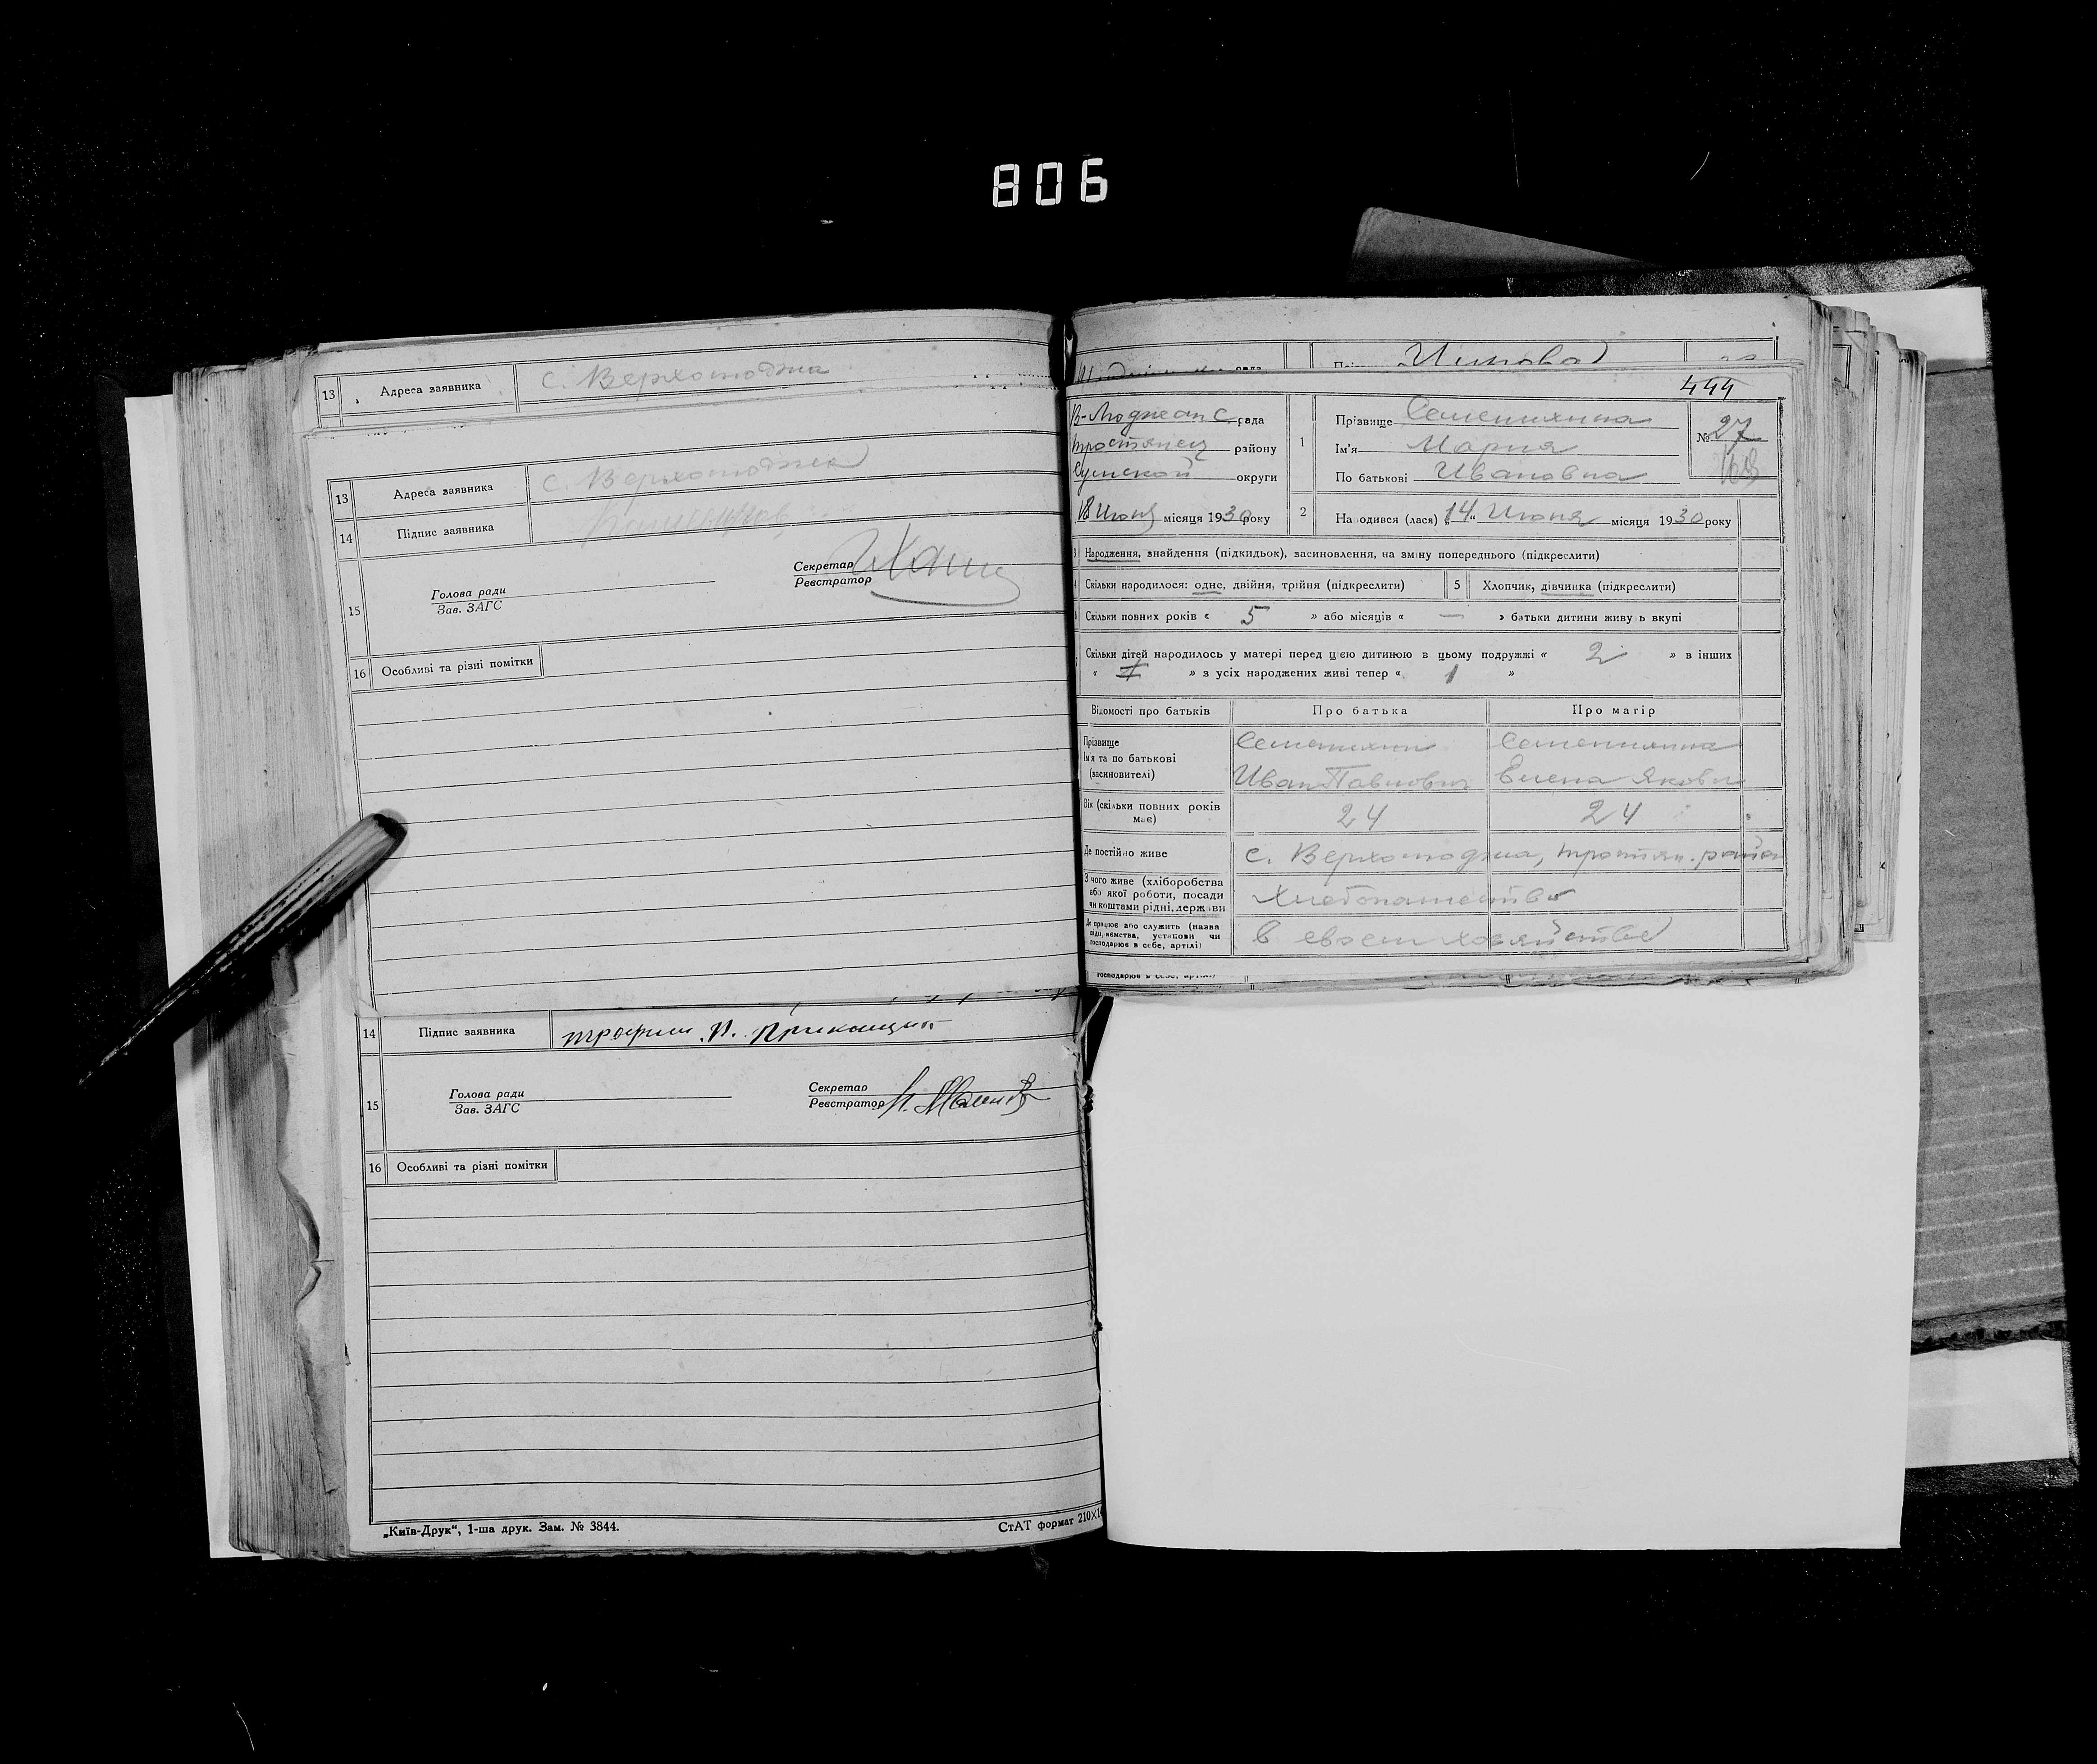 806
13 Адреса заявника с. Верхолюджа
13 Адреса заявника с. Верхолюджа
14 Підпис заявника
15 Голова ради
Зав. ЗАГС
Секретар
Реєстратор
16 Особливі та різні помітки
14 Підпис заявника трофим П.
15 Голова ради
Зав. ЗАГС
Секретар
Реєстратор
16 Особливі та різні помітки
„Київ-Друк“, 1-ша друк. Зам. № 3844.
СтАТ формат 210×1
444
В-Люджан. С. рада
тростянец району
Сумской округи
18 Июня місяця 1930 року
1 Прізвище Семенихина
Ім'я Мария
По батькові Ивановна
№ 27
2 Народився (лася) „14“ Июня місяця 1930 року
3 Народження, знайдення (підкидьок), засиновлення, на зміну попереднього (підкреслити)
Скільки народилося: одне, двійня, трійня (підкреслити)
5 Хлопчик, дівчинка (підкреслити)
Скільки повних років « 5 » або місяців « — » батьки дитини живуть вкупі
Скільки дітей народилось у матері перед цією дитиною в цьому подружжі « 2 » в інших
« » з усіх народжених живі тепер « 1 »
Відомості про батьків Про батька Про матір
Прізвище
Ім'я та по батькові
(засиновителі)
Семенихин
Иван Павлович
Семенихина
Елена Яковл
Вік (скільки повних років
має)
24 24
Де постійно живе с. Верхолюджа, тростян. район
З чого живе (хліборобства
або якої роботи, посади
чи коштами рідні, держави
Хлебопашество
Де працює або служить (назва
підприємства, установи чи
господарює в себе, артілі)
в своем хозяйстве
господарює в себе, артілі)